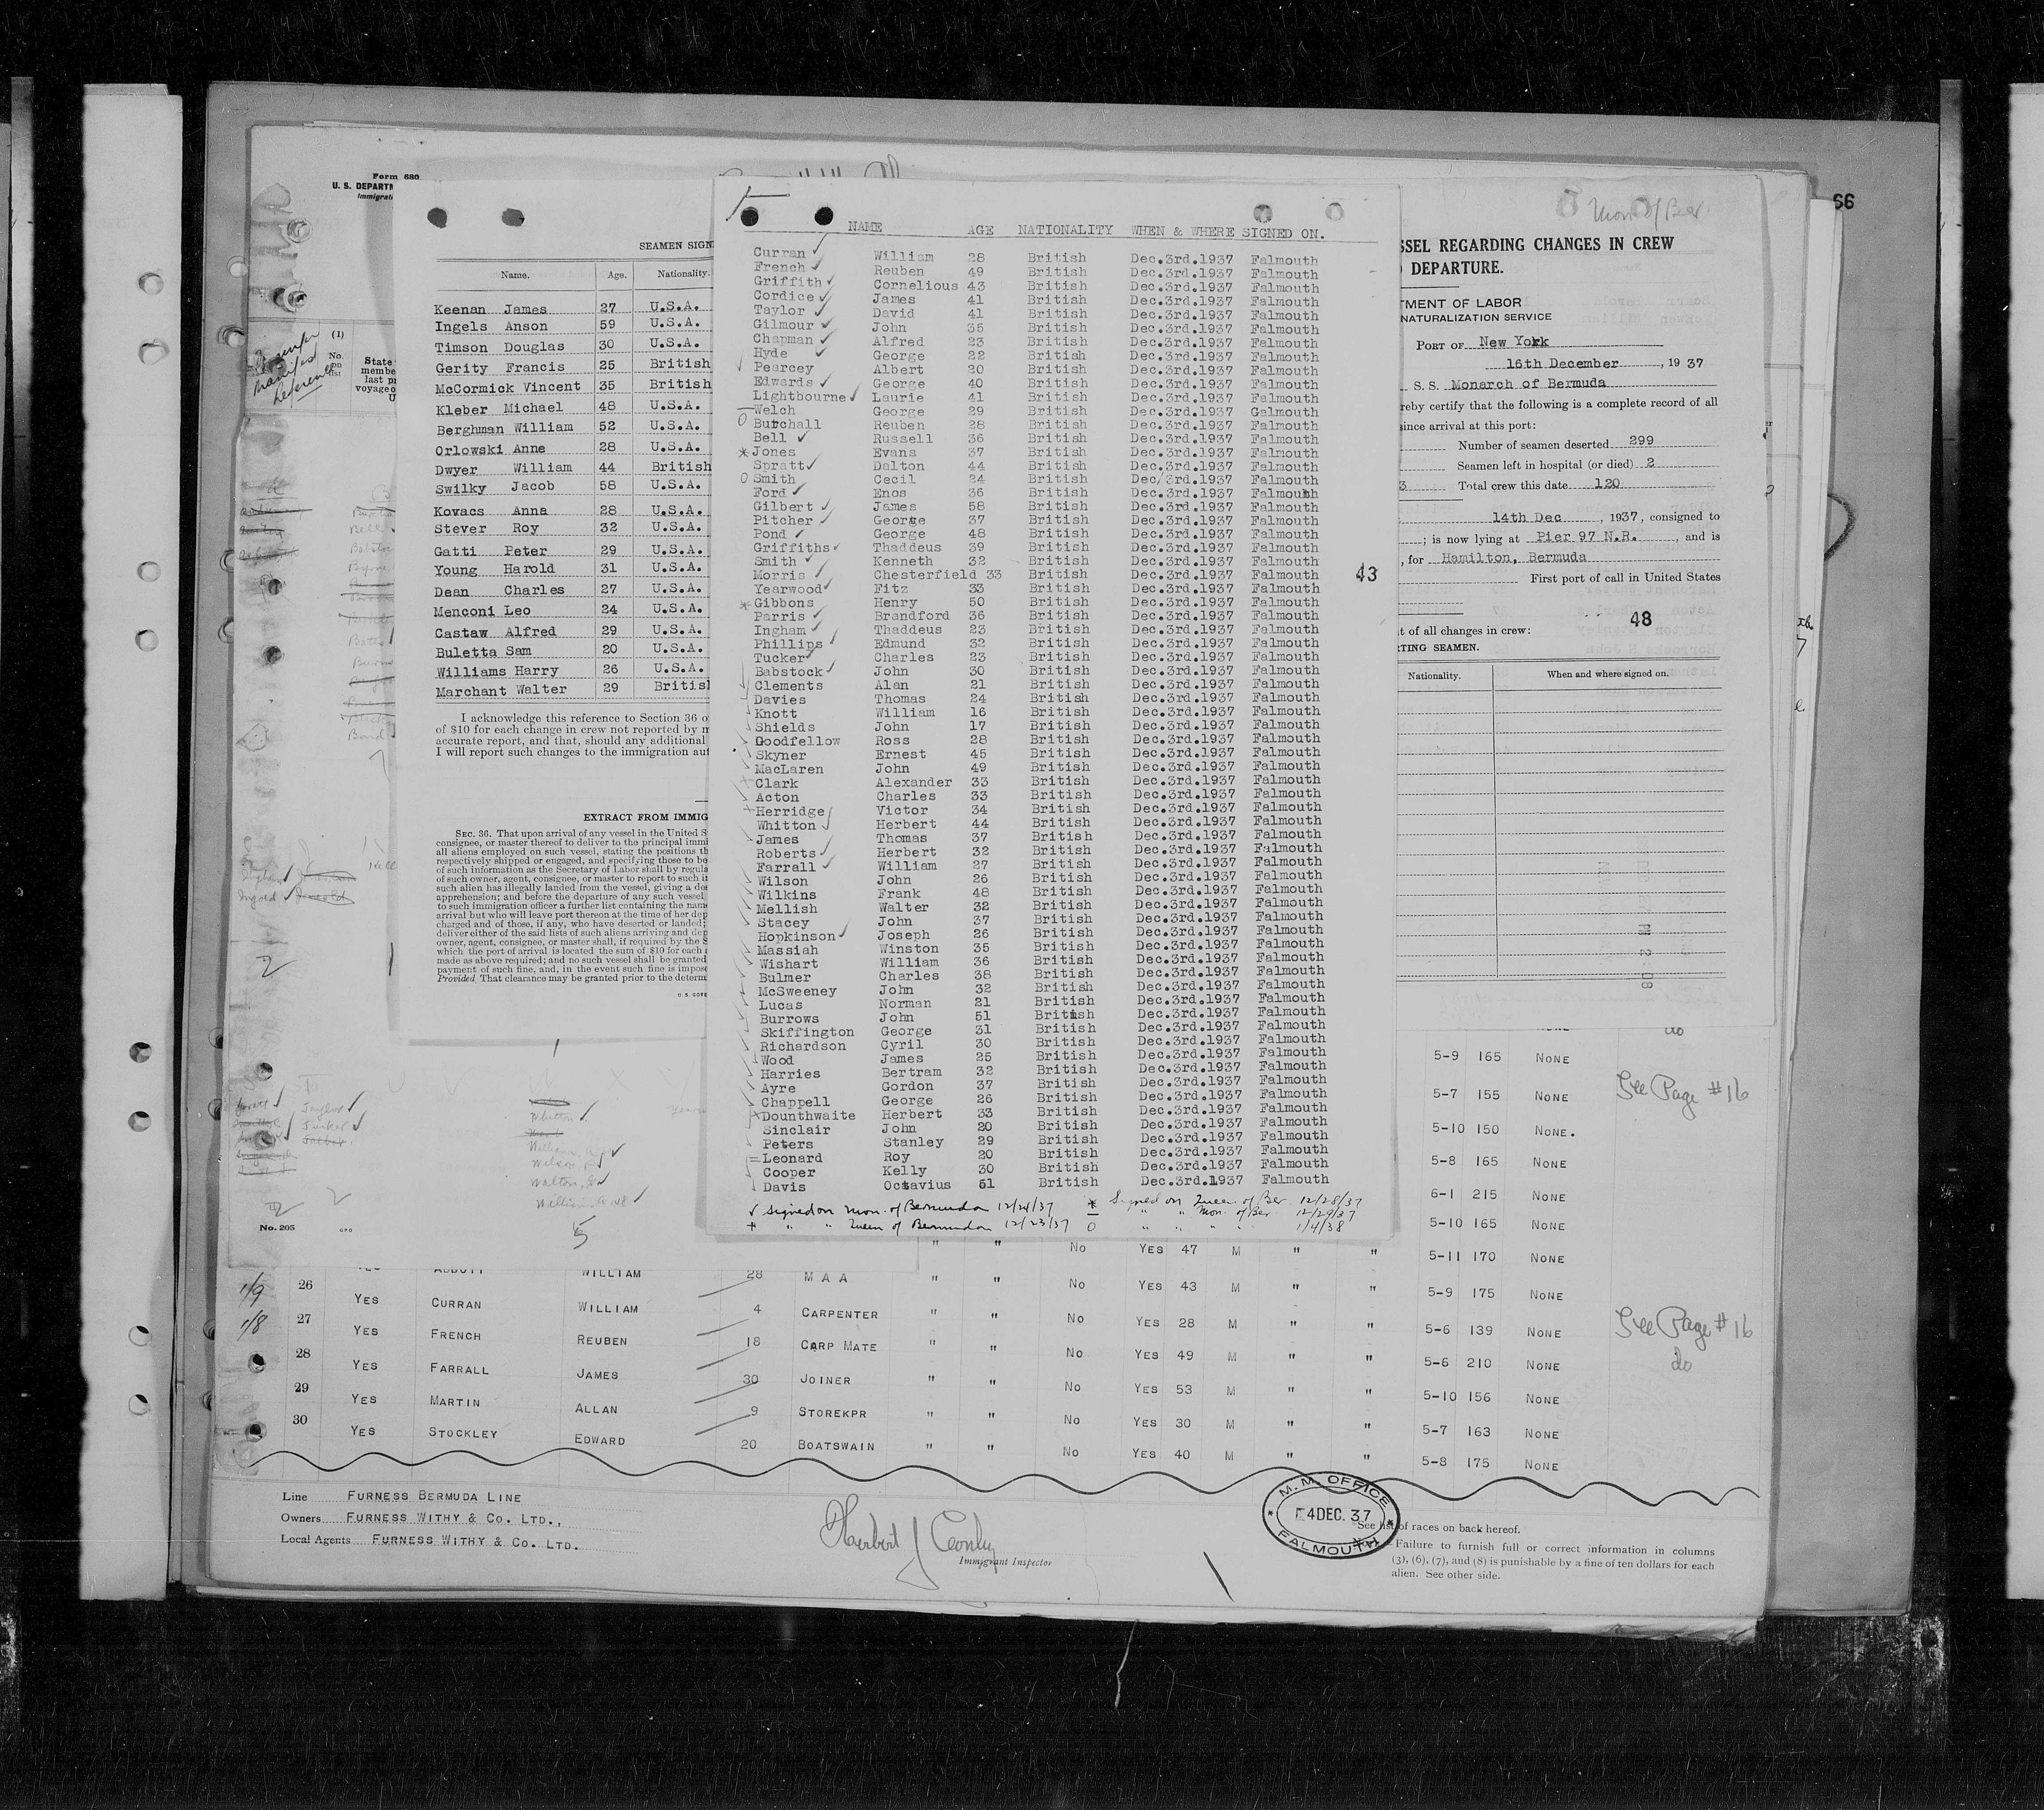 66
Form 680
U. S. DEPARTM
Immigrati
Mon. of Ber.
(1)
No. on list
State
membe
last pr
voyage o
U
manifest
Reference
SEAMEN SIGN
Name. Age. Nationality.
Keenan James 27 U.S.A.
Ingels Anson 59 U.S.A.
Timson Douglas 30 U.S.A.
Gerity Francis 25 British
McCormick Vincent 35 British
Kleber Michael 48 U.S.A.
Berghman William 52 U.S.A.
Orlowski Anne 28 U.S.A.
Dwyer William 44 British
Swilky Jacob 58 U.S.A.
Kovacs Anna 28 U.S.A.
Stever Roy 32 U.S.A.
Gatti Peter 29 U.S.A.
Young Harold 31 U.S.A.
Dean Charles 27 U.S.A.
Menconi Leo 24 U.S.A.
Castaw Alfred 29 U.S.A.
Buletta Sam 20 U.S.A.
Williams Harry 26 U.S.A.
Marchant Walter 29 Britis
I acknowledge this reference to Section 36 o
of $10 for each change in crew not reported by m
accurate report, and that, should any additional
I will report such changes to the immigration aut
EXTRACT FROM IMMIG
SEC. 36. That upon arrival of any vessel in the United S
consignee, or master thereof to deliver to the principal immi
all aliens employed on such vessel, stating the positions th
respectively shipped or engaged, and specifying those to be
of such information as the Secretary of Labor shall by regula
of such owner, agent, consignee, or master to report to such i
such alien has illegally landed from the vessel, giving a des
apprehension; and before the departure of any such vessel
to such immigration officer a further list containing the name
arrival but who will leave port thereon at the time of her dep
charged and of those, if any, who have deserted or landed;
deliver either of the said lists of such aliens arriving and dep
owner, agent, consignee, or master shall, if required by the S
which the port of arrival is located the sum of $10 for each a
made as above required; and no such vessel shall be granted
payment of such fine, and, in the event such fine is impose
Provided, That clearance may be granted prior to the determ
U. S. GOVE
NAME AGE NATIONALITY WHEN & WHERE SIGNED ON.
Curran William 28 British Dec.3rd.1937 Falmouth
French Reuben 49 British Dec.3rd.1937 Falmouth
Griffith Cornelious 43 British Dec.3rd.1937 Falmouth
Cordice James 41 British Dec.3rd.1937 Falmouth
Taylor David 41 British Dec.3rd.1937 Falmouth
Gilmour John 35 British Dec.3rd.1937 Falmouth
Chapman Alfred 23 British Dec.3rd.1937 Falmouth
Hyde George 22 British Dec.3rd.1937 Falmouth
Pearcey Albert 20 British Dec.3rd.1937 Falmouth
Edwards George 40 British Dec.3rd.1937 Falmouth
Lightbourne Laurie 41 British Dec.3rd.1937 Falmouth
Welch George 29 British Dec.3rd.1937 Galmouth
O Butchall Reuben 28 British Dec.3rd.1937 Falmouth
Bell Russell 36 British Dec.3rd.1937 Falmouth
* Jones Evans 37 British Dec.3rd.1937 Falmouth
Spratt Dalton 44 British Dec.3rd.1937 Falmouth
O Smith Cecil 24 British Dec/3rd.1937 Falmouth
Ford Enos 36 British Dec.3rd.1937 Falmouth
Gilbert James 58 British Dec.3rd.1937 Falmouth
Pitcher George 37 British Dec.3rd.1937 Falmouth
Pond George 48 British Dec.3rd.1937 Falmouth
Griffiths Thaddeus 39 British Dec.3rd.1937 Falmouth
Smith Kenneth 32 British Dec.3rd.1937 Falmouth
Morris Chesterfield 33 British Dec.3rd.1937 Falmouth 43
Yearwood Fitz 33 British Dec.3rd.1937 Falmouth
* Gibbons Henry 50 British Dec.3rd.1937 Falmouth
Parris Brandford 36 British Dec.3rd.1937 Falmouth
Ingham Thaddeus 23 British Dec.3rd.1937 Falmouth
Phillips Edmund 32 British Dec.3rd.1937 Falmouth
Tucker Charles 23 British Dec.3rd.1937 Falmouth
Babstock John 30 British Dec.3rd.1937 Falmouth
Clements Alan 21 British Dec.3rd.1937 Falmouth
Davies Thomas 24 British Dec.3rd.1937 Falmouth
Knott William 16 British Dec.3rd.1937 Falmouth
Shields John 17 British Dec.3rd.1937 Falmouth
Goodfellow Ross 28 British Dec.3rd.1937 Falmouth
Skyner Ernest 45 British Dec.3rd.1937 Falmouth
MacLaren John 49 British Dec.3rd.1937 Falmouth
Clark Alexander 33 British Dec.3rd.1937 Falmouth
Acton Charles 33 British Dec.3rd.1937 Falmouth
Herridge Victor 34 British Dec.3rd.1937 Falmouth
Whitton Herbert 44 British Dec.3rd.1937 Falmouth
James Thomas 37 British Dec.3rd.1937 Falmouth
Roberts Herbert 32 British Dec.3rd.1937 Falmouth
Farrall William 27 British Dec.3rd.1937 Falmouth
Wilson John 26 British Dec.3rd.1937 Falmouth
Wilkins Frank 48 British Dec.3rd.1937 Falmouth
Mellish Walter 32 British Dec.3rd.1937 Falmouth
Stacey John 37 British Dec.3rd.1937 Falmouth
Hopkinson Joseph 26 British Dec.3rd.1937 Falmouth
Massiah Winston 35 British Dec.3rd.1937 Falmouth
Wishart William 36 British Dec.3rd.1937 Falmouth
Bulmer Charles 38 British Dec.3rd.1937 Falmouth
McSweeney John 32 British Dec.3rd.1937 Falmouth
Lucas Norman 21 British Dec.3rd.1937 Falmouth
Burrows John 51 British Dec.3rd.1937 Falmouth
Skiffington George 31 British Dec.3rd.1937 Falmouth
Richardson Cyril 30 British Dec.3rd.1937 Falmouth
Wood James 25 British Dec.3rd.1937 Falmouth
Harries Bertram 32 British Dec.3rd.1937 Falmouth
Ayre Gordon 37 British Dec.3rd.1937 Falmouth
Chappell George 26 British Dec.3rd.1937 Falmouth
Dounthwaite Herbert 33 British Dec.3rd.1937 Falmouth
Sinclair John 20 British Dec.3rd.1937 Falmouth
Peters Stanley 29 British Dec.3rd.1937 Falmouth
Leonard Roy 20 British Dec.3rd.1937 Falmouth
Cooper Kelly 30 British Dec.3rd.1937 Falmouth
Davis Octavius 51 British Dec.3rd.1937 Falmouth
✓ Signed on Mon. of Bermuda 12/24/37 * Signed on Queen of Ber. 12/28/37
+ " " Queen of Bermuda 12/23/37 — " " Mon. of Ber. 12/29/37
O " " " " 1/4/38
SSEL REGARDING CHANGES IN CREW
DEPARTURE.
TMENT OF LABOR
NATURALIZATION SERVICE
PORT OF New York
16th December, 1937
S. S. Monarch of Bermuda
reby certify that the following is a complete record of all
since arrival at this port:
Number of seamen deserted 299
Seamen left in hospital (or died) 2
3 Total crew this date 120
14th Dec, 1937, consigned to
; is now lying at Pier 97 N.R., and is
, for Hamilton, Bermuda
First port of call in United States
48
t of all changes in crew:
RTING SEAMEN.
Nationality. When and where signed on.
do
5-9 165 NONE
5-7 155 NONE See Page #16
5-10 150 NONE.
5-8 165 NONE
6-1 215 NONE
5-10 165 NONE
5-11 170 NONE
Taylor
Tucker
Whitton
Wilson
Walton
2 2
No. 205 GPO
5
" " No YES 47 M " "
26 ABBOTT WILLIAM 28 M A A " " No YES 43 M " " 5-9 175 NONE
1/9 27 YES CURRAN WILLIAM 4 CARPENTER " " No YES 28 M " " 5-6 139 NONE See Page #16
1/8 28 YES FRENCH REUBEN 18 CARP MATE " " No YES 49 M " " 5-6 210 NONE do
29 YES FARRALL JAMES 30 JOINER " " No YES 53 M " " 5-10 156 NONE
30 YES MARTIN ALLAN 9 STOREKPR " " No YES 30 M " " 5-7 163 NONE
YES STOCKLEY EDWARD 20 BOATSWAIN " " No YES 40 M " " 5-8 175 NONE
Line FURNESS BERMUDA LINE
Owners FURNESS WITHY & CO. LTD.,
Local Agents FURNESS WITHY & CO. LTD.
Herbert J
Immigrant Inspector
M. M. OFFICE
E 4 DEC. 37
FALMOUTH
See list of races on back hereof.
Failure to furnish full or correct information in columns
(3), (6), (7), and (8) is punishable by a fine of ten dollars for each
alien. See other side.